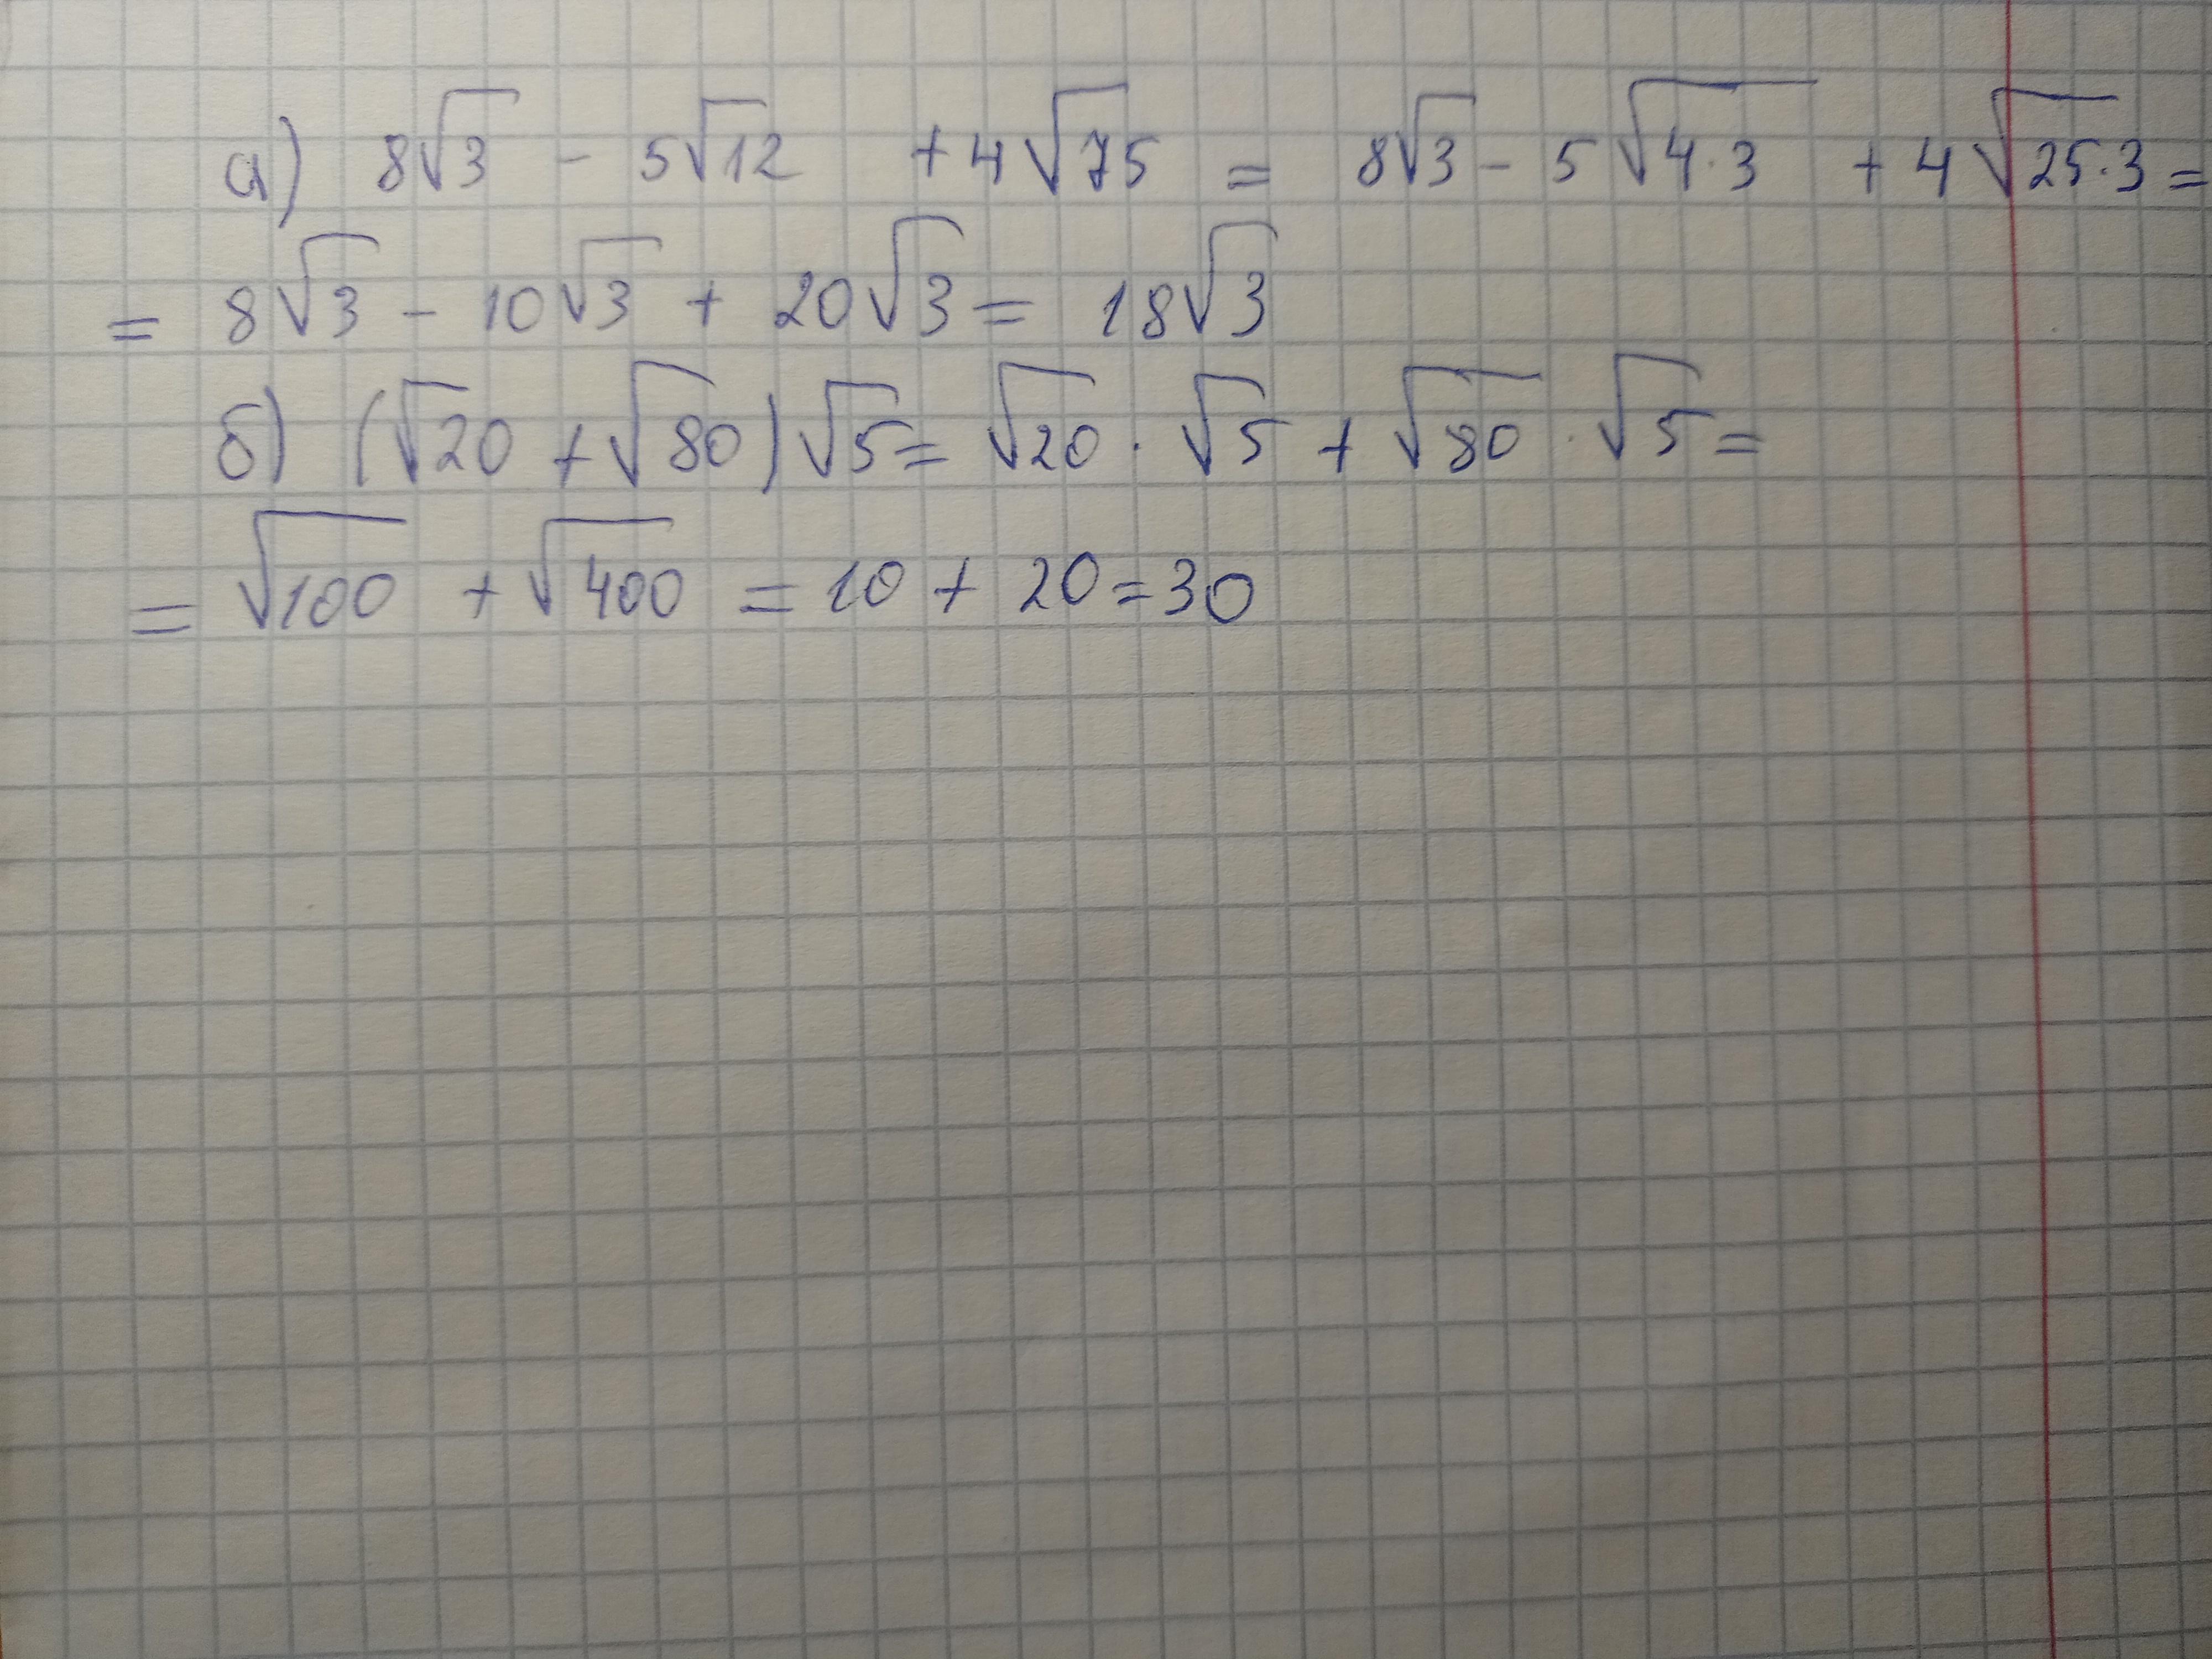 а) 8√3 - 5√12 + 4√75 = 8√3 - 5√4·3 + 4√25·3 =
= 8√3 - 10√3 + 20√3 = 18√3
б) (√20 + √80)√5 = √20 · √5 + √80 · √5 =
= √100 + √400 = 10 + 20 = 30